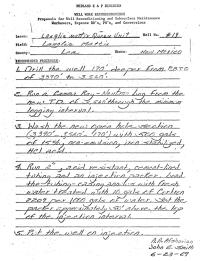 MIDLAND E & P DIVISION
WELL WORK RECOMMENDATION
Proposals for Well Reconditioning and Subsurface Maintenance
Workovers, Expense and Conversions
Lease: Langlie Mattix Queen Unit Well No. #19
Field: Langlie Mattix
County: Lea State: New Mexico
RECOMMENDED PROCEDURE:
1. Drill the well 170' deeper from
of 3390' to 3560'.
2. Run a Gamma Ray - Neutron log from the
new TD of 3560' through the
logging interval.
3. Wash the new open hole section
(3390' - 3560', 170') with 500 gals
of 15%, iron stabilized,
HCl acid.
4. Run 2" cement-lined
tubing and an injection packer. Load
the tubing-casing annulus with fresh
water treated with 10 gals of
per 100 gals of water. Set the
packer approximately 50' above the top
of the injection interval.
5. Put the well on injection.
John E. Smith
6-23-69